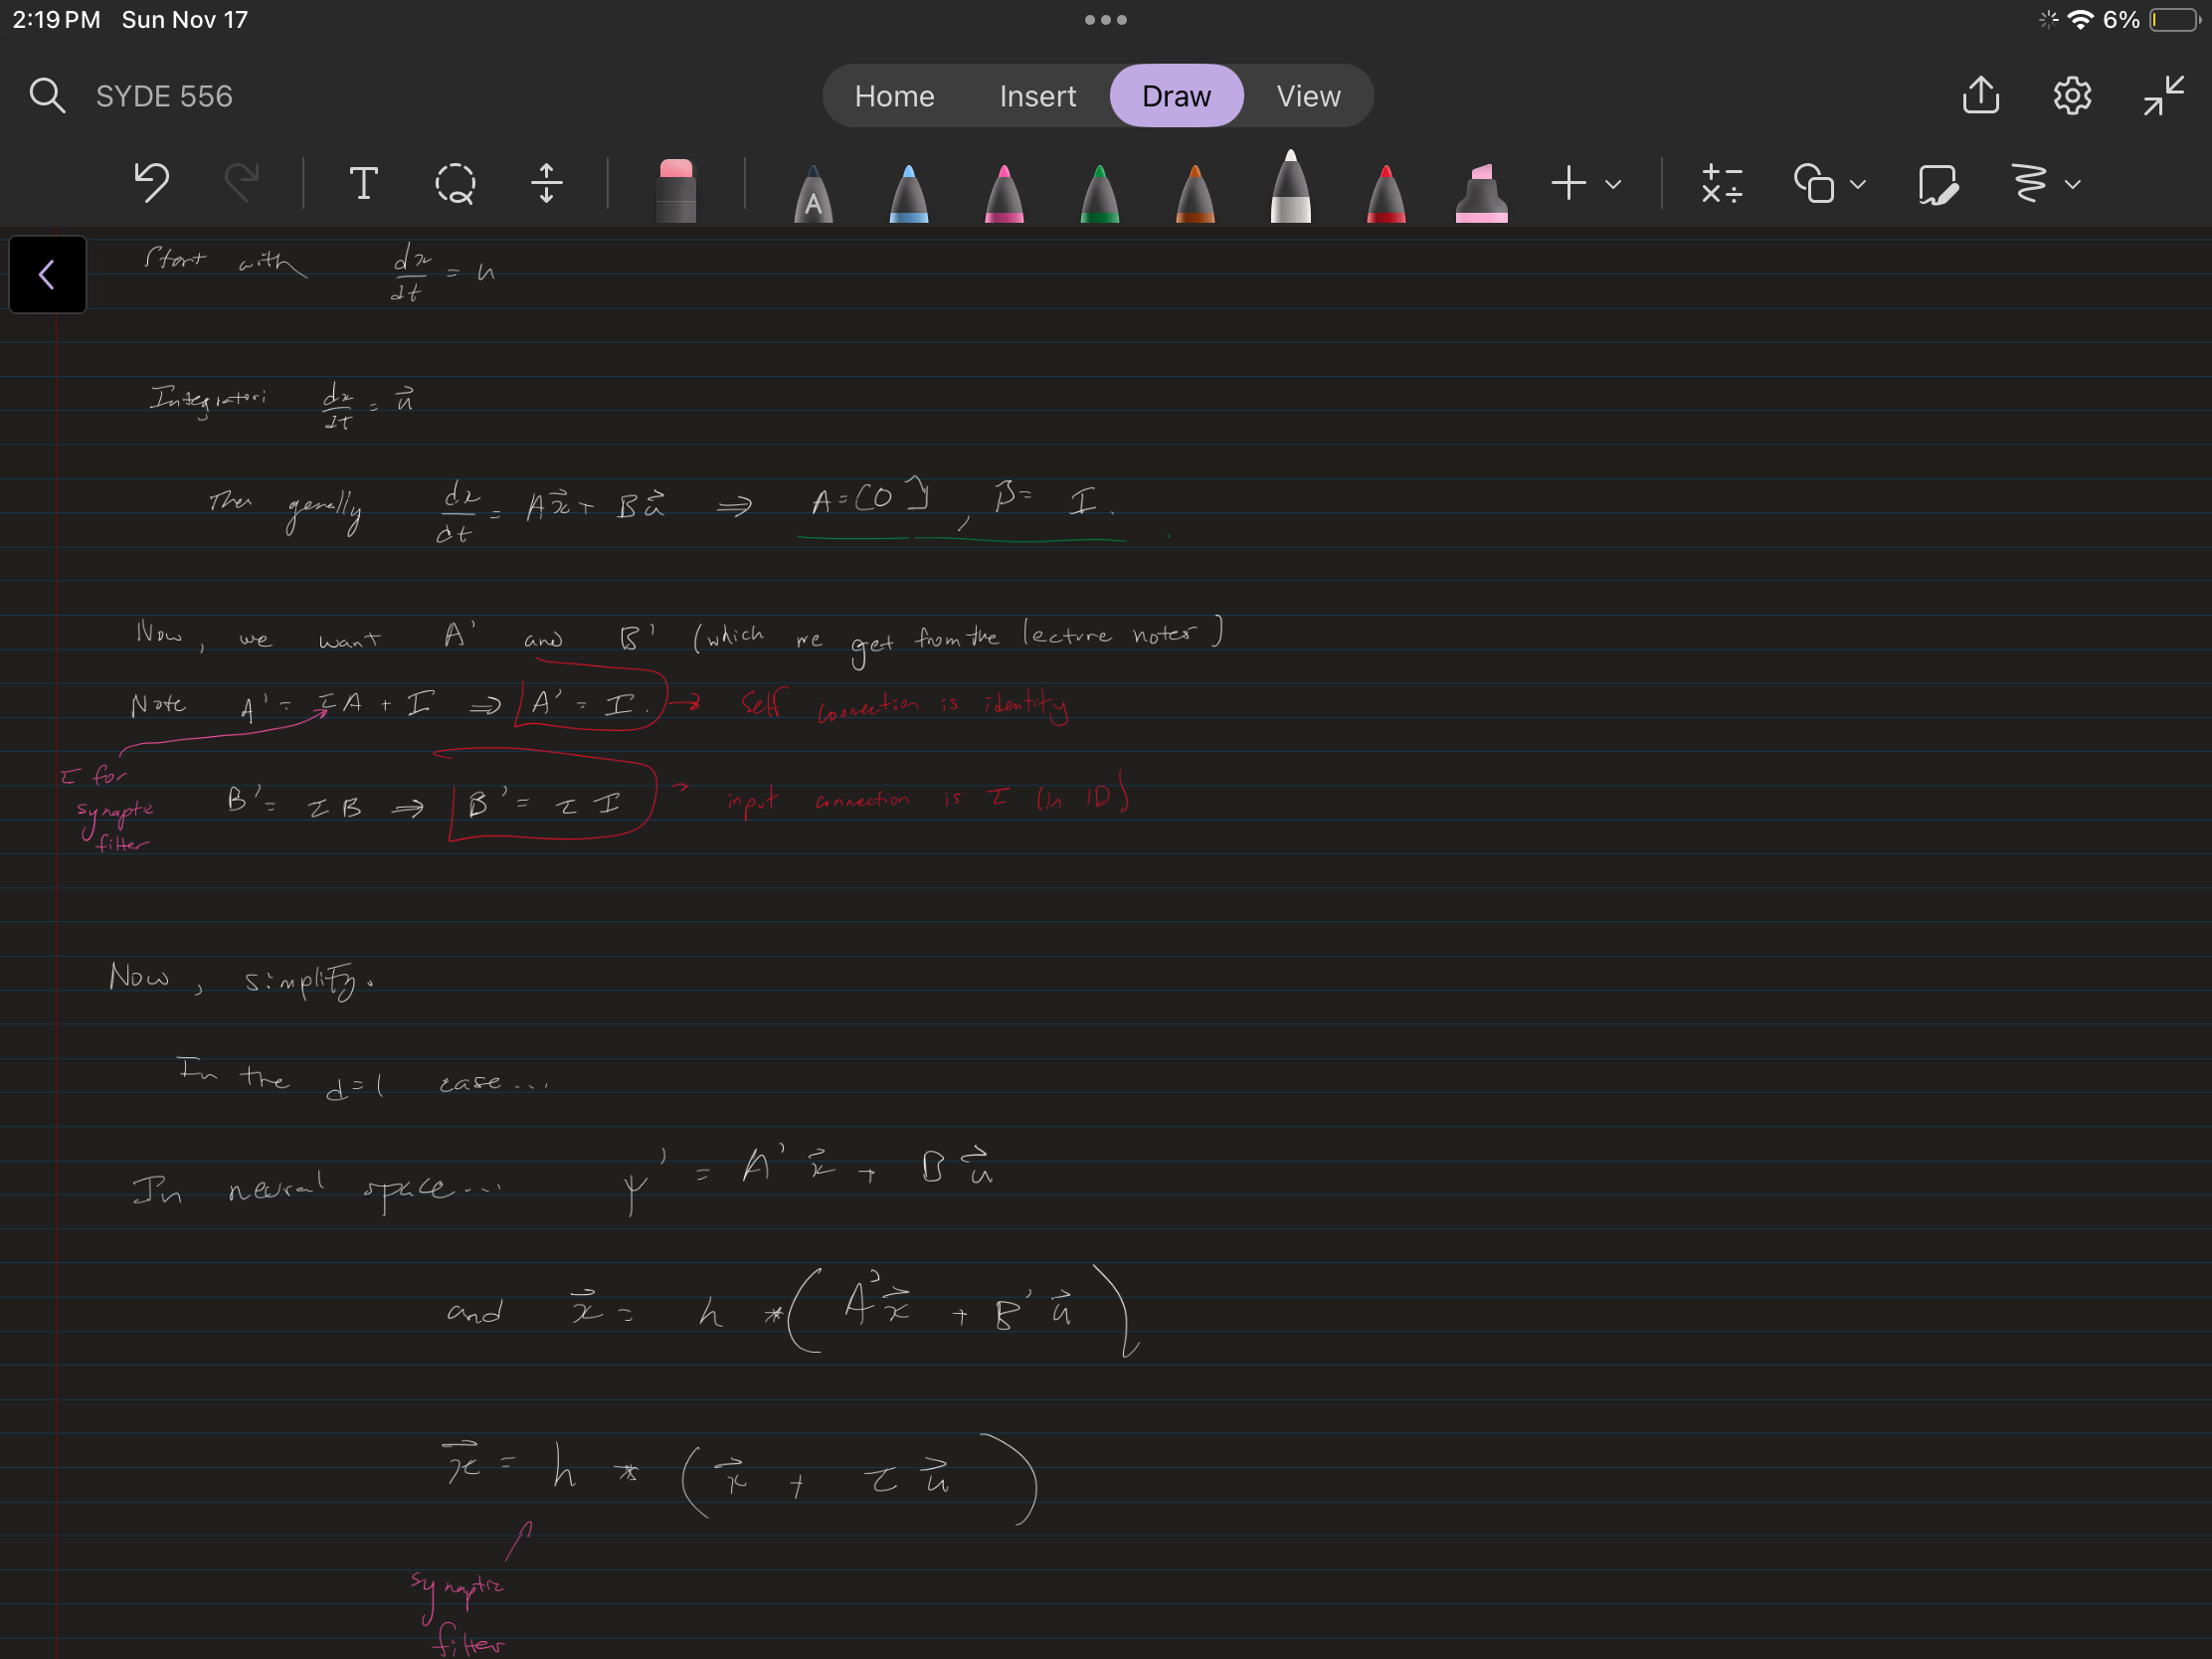 2:19 PM Sun Nov 17
6%
SYDE 556
Home Insert Draw View
T
A
Start with dx/dt = u
Integrator: dx/dt = u⃗
Then genally dx/dt = Ax⃗ + Bu⃗ ⇒ A = [0], B = I.
Now, we want A' and B' (which we get from the lecture notes)
Note A' = τA + I ⇒ A' = I. → Self connection is identity
τ for
synaptic
filter
B' = τB ⇒ B' = τI → input connection is τ (in 1D)
Now, simplify.
In the d=1 case...
In neural space... ψ' = A'x⃗ + Bu⃗
and x⃗ = h * (A'x⃗ + B'u⃗)
x⃗ = h * (x⃗ + τu⃗)
synaptic
filter